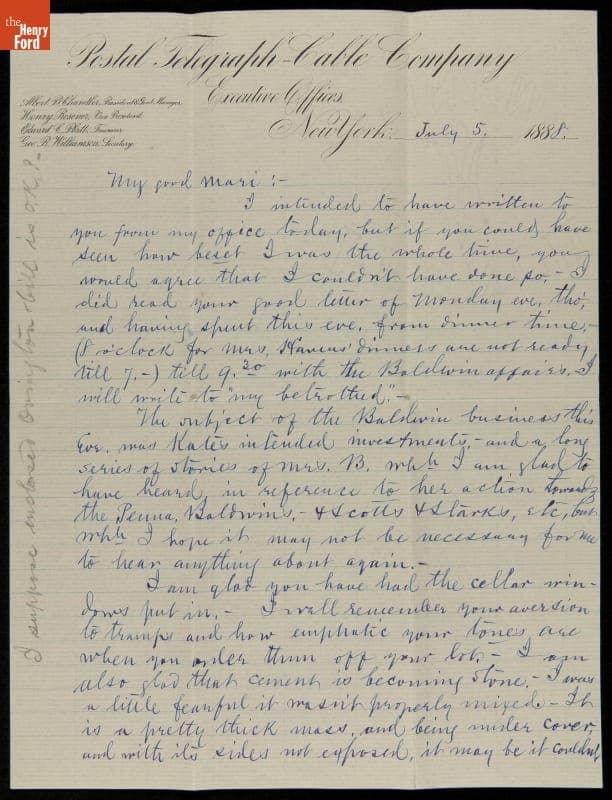 the Henry Ford
Postal Telegraph-Cable Company
Executive Offices.
Albert B. Chandler, President & Genl. Manager.
Henry Rosener, Vice President.
Edward C. Platt, Treasurer.
Geo. R. Williamson, Secretary.
New York, July 5. 1888.
My good Mari:-
I intended to have written to
you from my office today, but if you could have
seen how beset I was the whole time, you
would agree that I couldn't have done so. - I
did read your good letter of Monday eve, tho',
and having spent this eve. from dinner time, -
(8 o'clock for Mrs. Havens' dinners are not ready
till 7.-) till 9.30 with the Baldwin affairs, I
will write to "my betrothed". -
The subject of the Baldwin business this
Eve. was Kate's intended investments, - and a long
series of stories of Mrs. B. whh I am glad to
have heard, in reference to her action towards
the Penna. Baldwins, - & Scotts & Starks, etc, but
whh I hope it may not be necessary for me
to hear anything about again. -
I am glad you have had the cellar win-
dows put in. - I well remember your aversion
to tramps and how emphatic your tones are
when you order them off your lot. - I am
also glad that cement is becoming stone. - I was
a little fearful it wasn't properly mixed - It
is a pretty thick mass, and being under cover,
and with its sides not exposed, it may be it couldn't
I suppose enclosed Ovington bill is O.K.?-